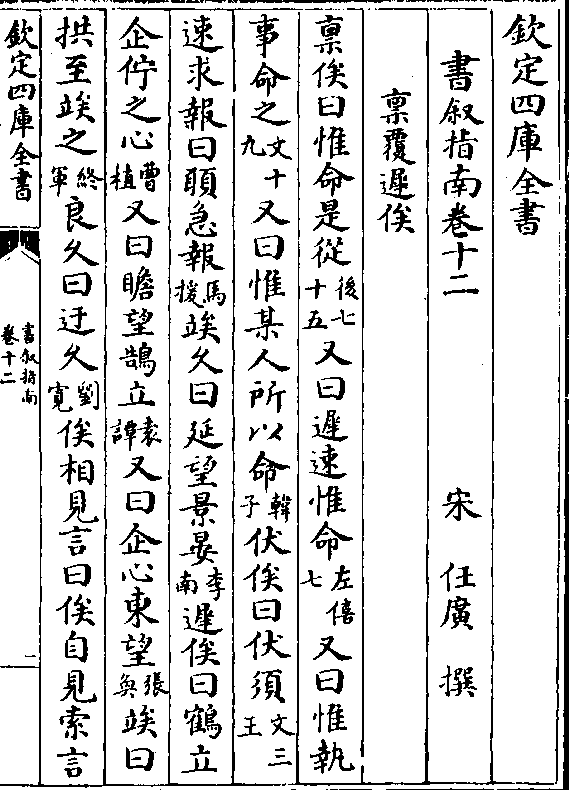 欽定四庫全書
書叙指南卷十二
宋 任廣 撰
禀覆遲俟
禀俟曰惟命是從後七十五又曰遲速惟命左僖七又曰惟執
事命之文十九又曰惟某人所以命韓子伏俟曰伏須文三王
速求報曰願急報馬援竢久曰延望景晏李南遲俟曰鶴立
企佇之心曹植又曰瞻望鵠立袁譚又曰企心東望張奐竢曰
拱至竢之終軍良久曰迂久劉寛俟相見言曰俟自見索言
欽定四庫全書
書叙指南
卷十二